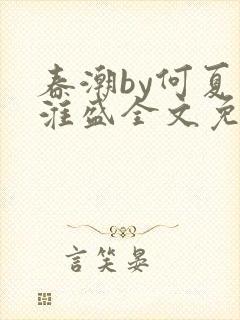 春潮by何夏
淮盛全文免
言笑晏